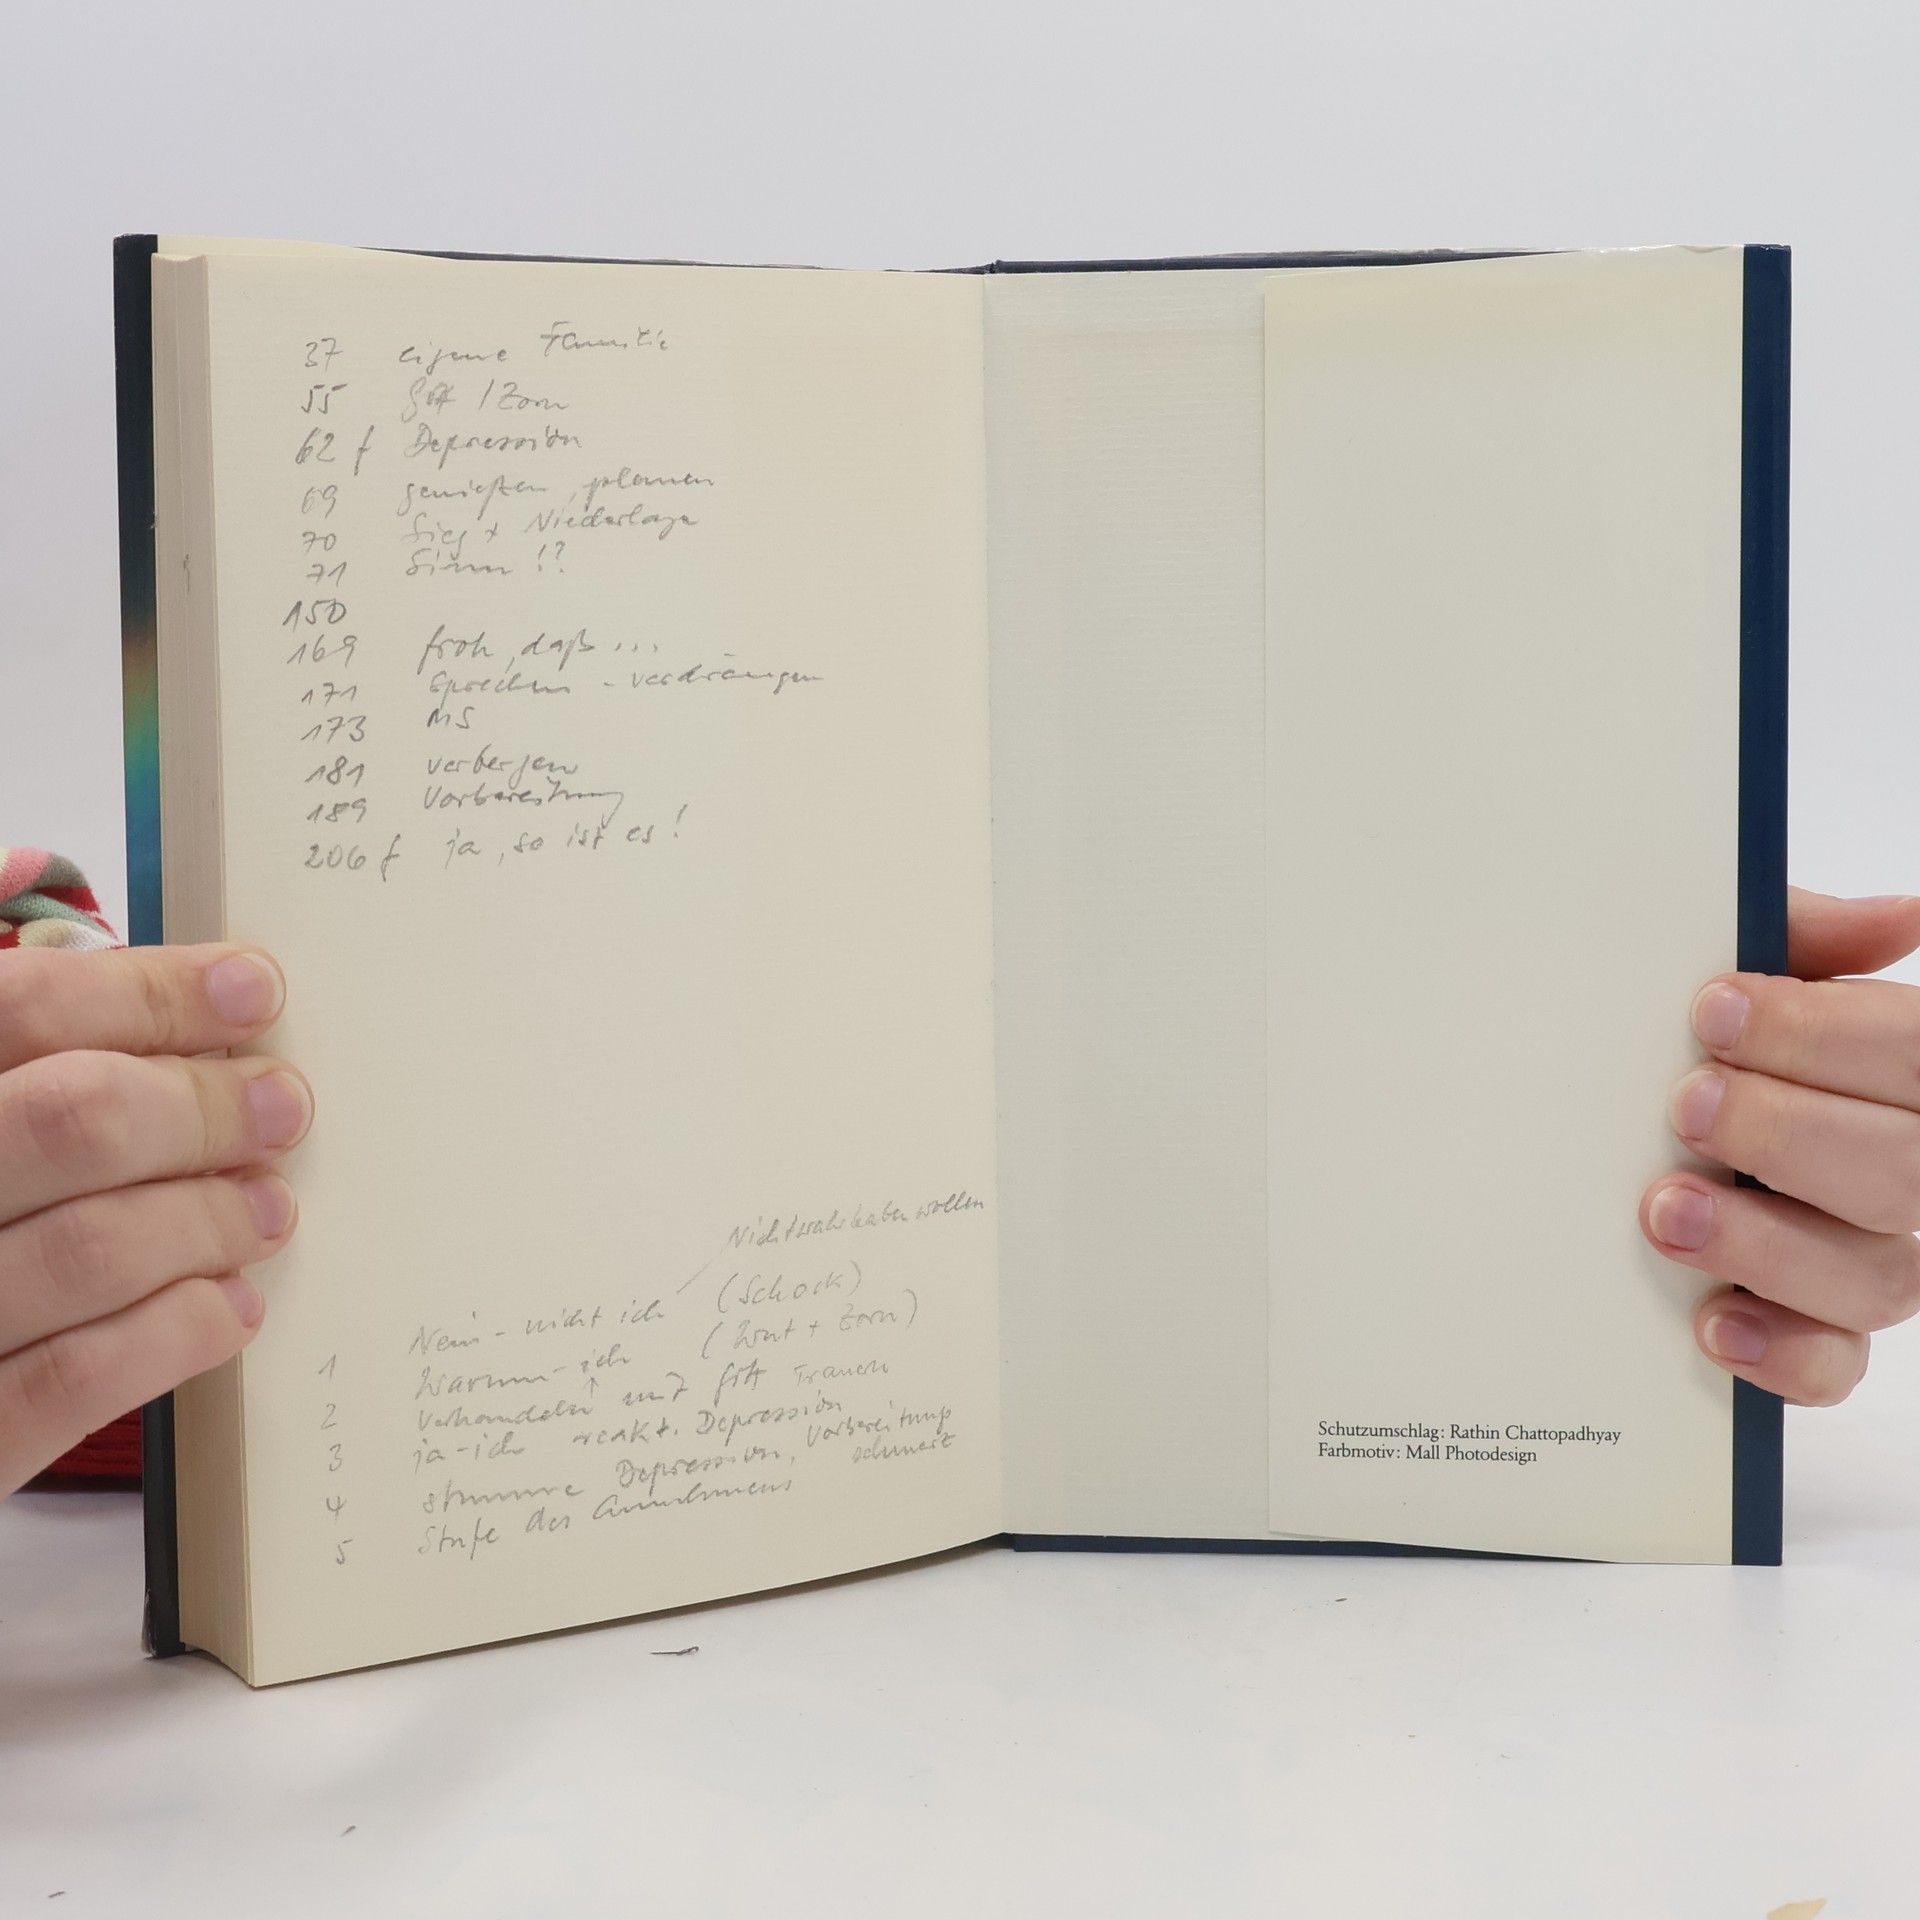 37 eigene Familie
55 Gott / Zorn
62 f Depression
69 genießen, planen
70 Sieg + Niederlage
71 Sinn !?
150
169 froh, daß ...
171 sprechen - verdrängen
173 MS
181 verbergen
189 Vorbereitung
206 f ja, so ist es!
Nichtwahrhabenwollen
1 Nein - nicht ich (Schock)
2 Warum - ich (Wut + Zorn)
3 Verhandeln mit Gott Trauern
4 ja - ich reakt. Depression
stumme Depression, Vorbereitungs
schmerz
5 Stufe des Annehmens
Schutzumschlag: Rathin Chattopadhyay
Farbmotiv: Mall Photodesign